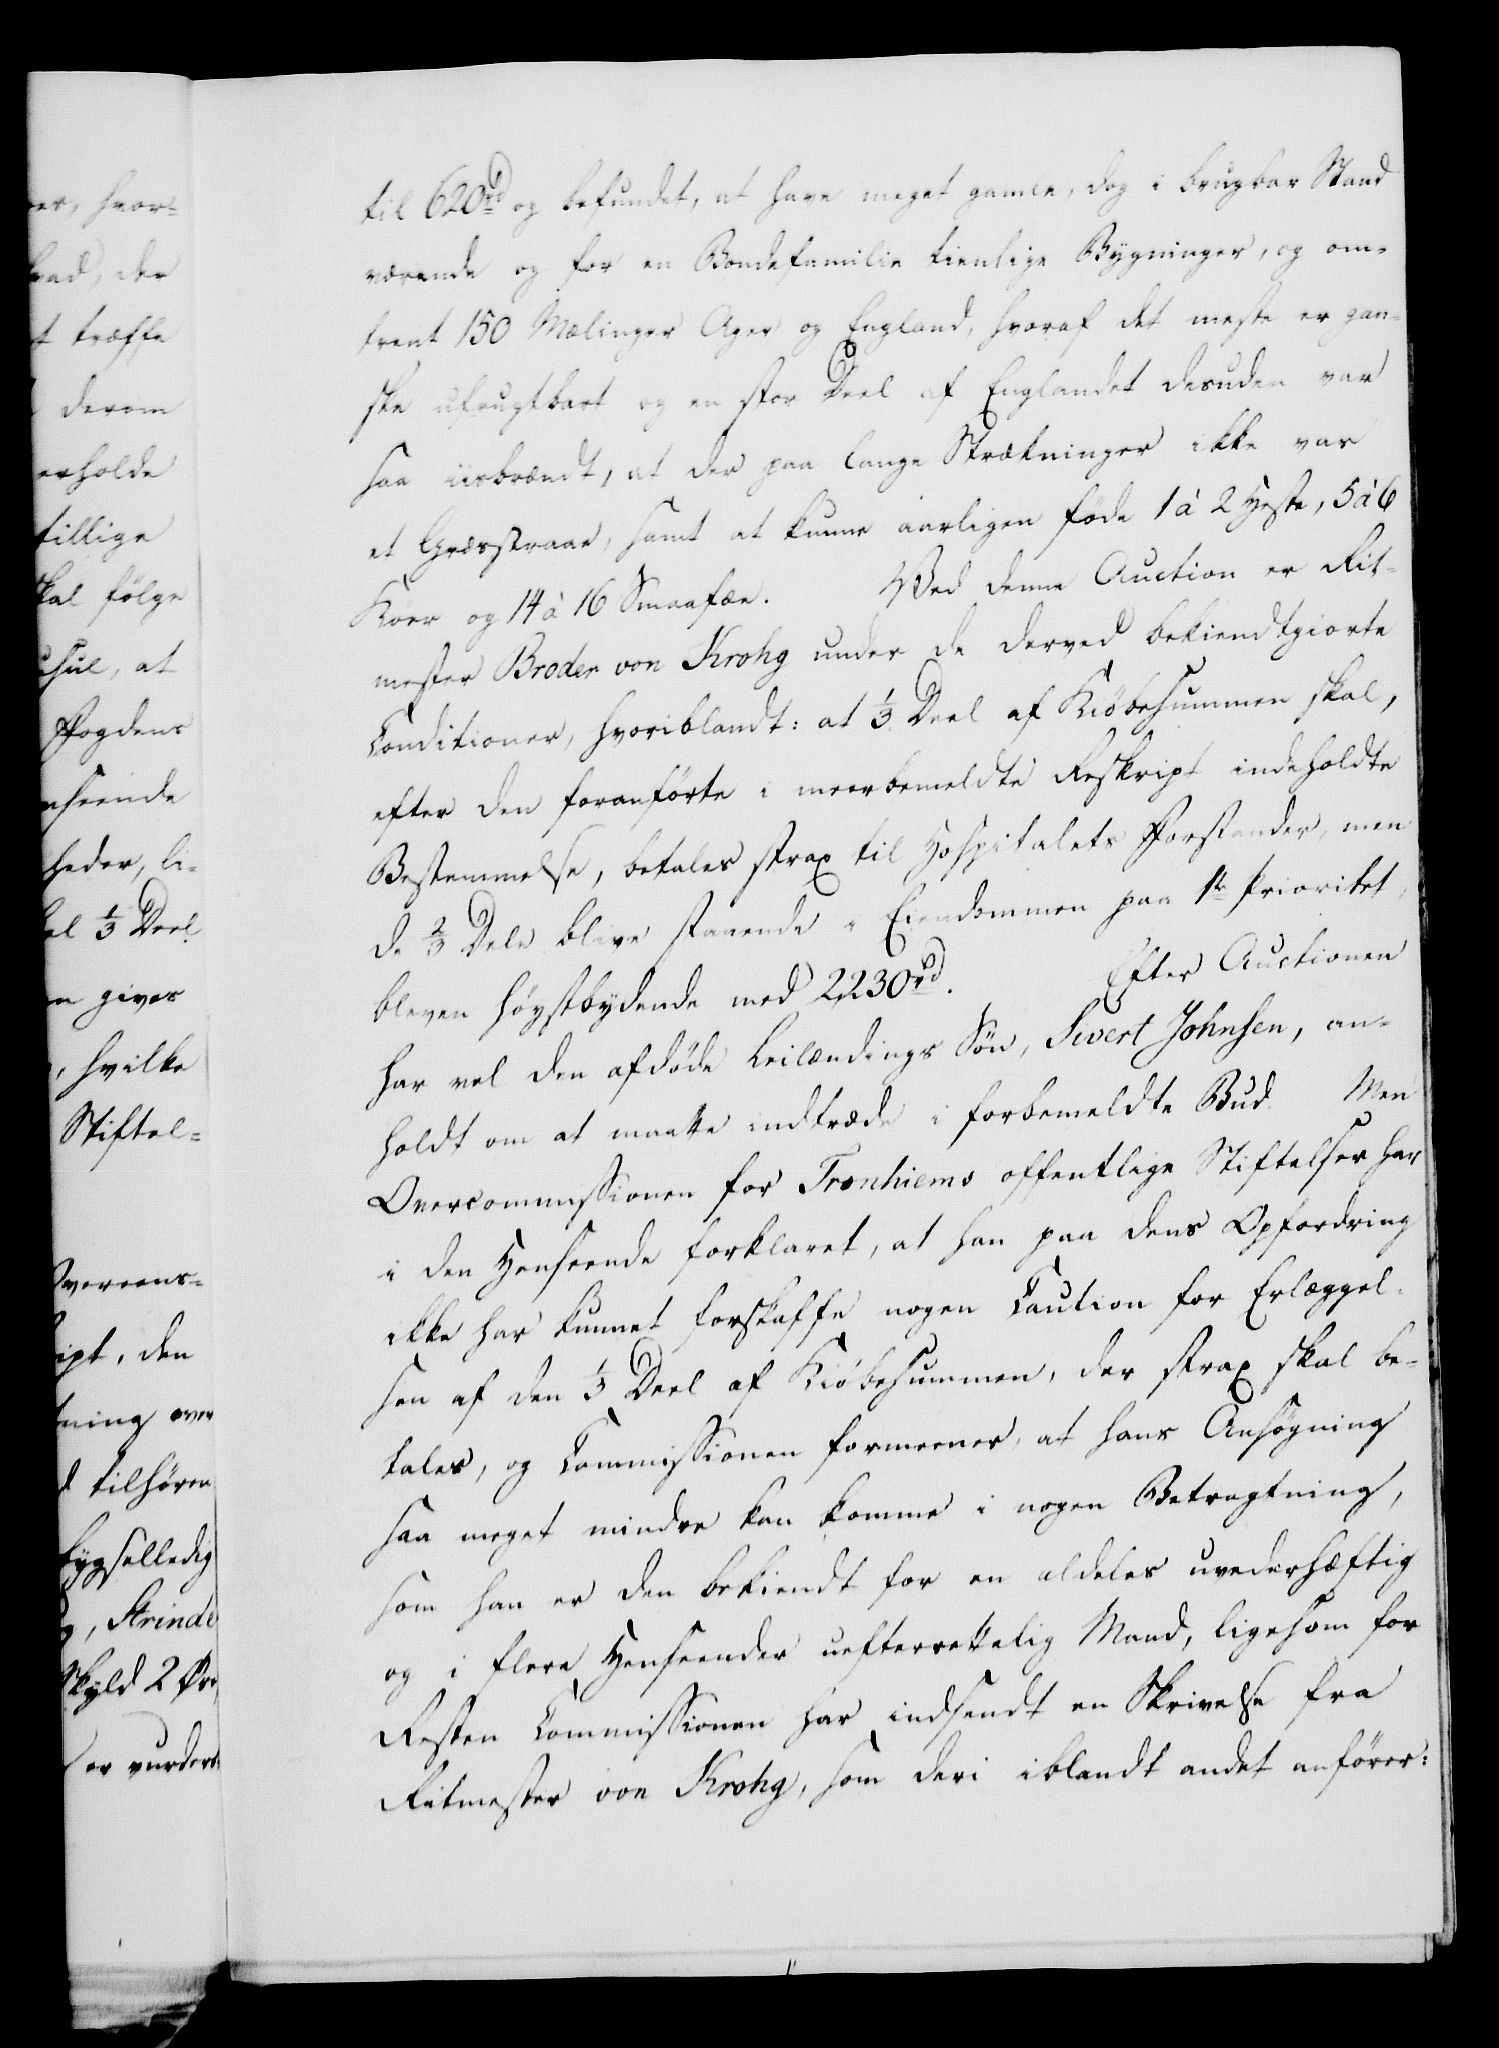 er, hvor-
bad, der
t træffe
derom
erholde
tillige
skal følge
, at
Fogdens
nseende
heder, li-
el 1/3 Deel
n gives
, hvilke
Stiftel-
Overeens-
ipt, den
tning over
d tilhøren
bygselledig
, Strinde
Skyld 2 Øre,
er vurdert
til 620rd og befundet, at have meget gamle, dog i brugbar Stand
værende og for en Bondefamilie tienlige Bygninger, og om-
trent 150 Mælinger Ager og England, hvoraf det meste er gan-
ske ufrugtbart og en stor Deel af Englandet desuden var
saa iisbrændt, at der paa lange Strækninger ikke var
et Græsstraae, samt at kunne aarligen føde 1 à 2 Heste, 5 à 6
Koer og 14 à 16 Smaafæe. Ved denne Auction er Rit-
mester Broder von Krohg under de derved bekiendtgiorte
Conditioner, hvoriblandt: at 1/3 Deel af Kiøbesummen skal,
efter den foranførte i meerbemeldte Reskript indeholdte
Bestemmelse, betales strax til Hospitalets Forstander, men
de 2/3 Dele blive staaende i Eiendommen paa 1te Prioritet,
bleven høystbydende med 2230rd. Efter Auctionen
har vel den afdøde Leilændings Søn, Sivert Johnsen, an-
holdt om at maatte indtræde i forbemeldte Bud. Men
Overcommissionen for Tronhiems offentlige Stiftelser har
i den Henseende forklaret, at han paa dens Opfordring
ikke har kunnet forskaffe nogen Caution for Erlæggel-
sen af den 1/3 Deel af Kiøbesummen, der strax skal be-
tales, og Commissionen formeener, at hans Ansøgning
saa meget mindre kan komme i nogen Betragtning,
som han er den bekiendt for en aldeles uvederhæftig
og i flere Henseender uefterrettelig Mand, ligesom for
Resten Commissionen har indsendt en Skrivelse fra
Ritmester von Krohg, som deri iblandt andet anfører: